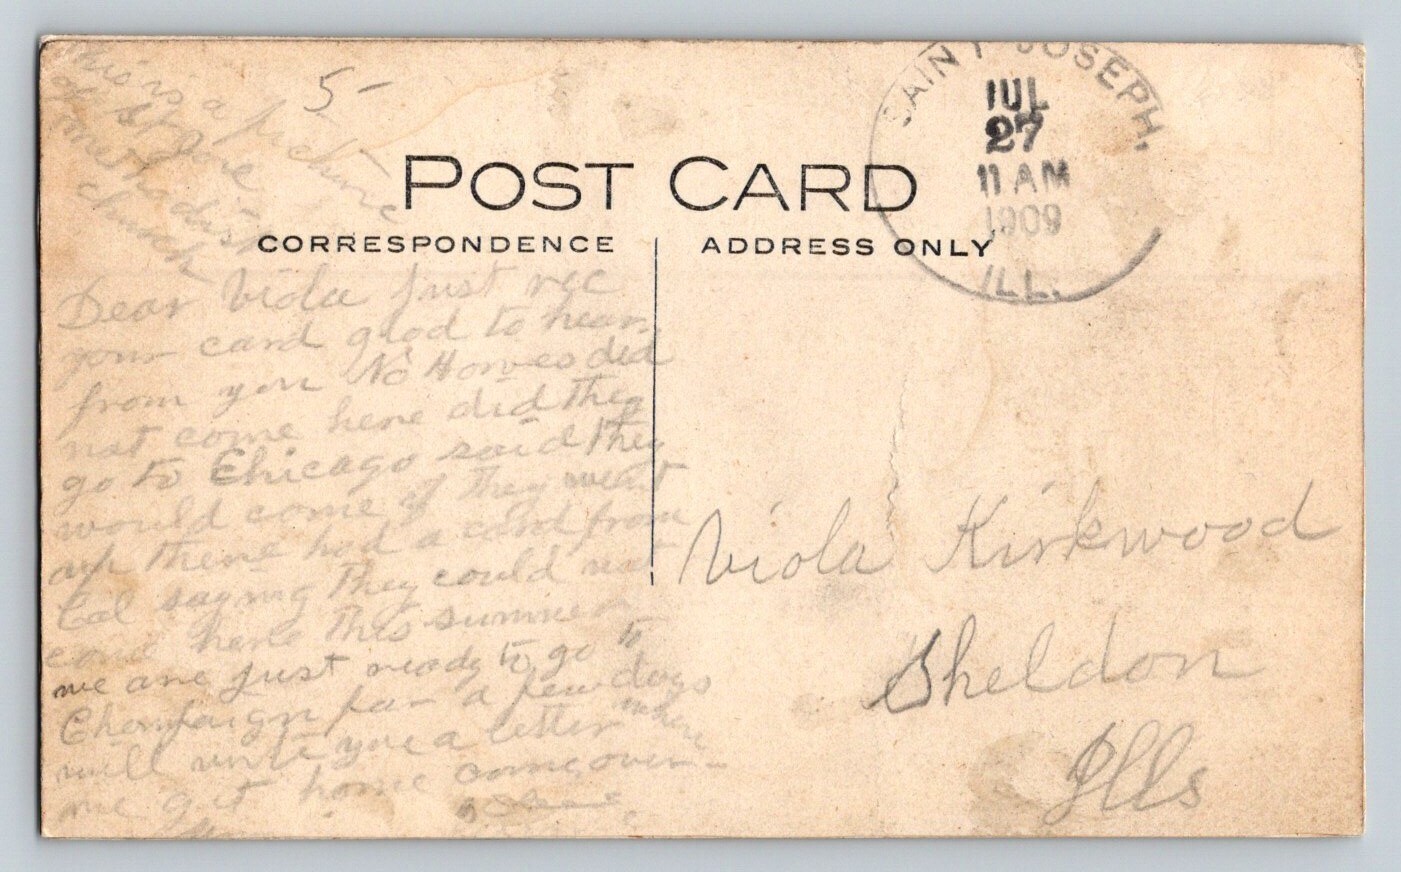 This is a picture
of St Joe
methodist
church
5-
POST CARD
CORRESPONDENCE
ADDRESS ONLY
SAINT JOSEPH.
JUL
27
11 AM
1909
ILL.
Dear Viola Just rec
your card glad to hear
from you No Howes did
not come here did they
go to Chicago said they
would come if they went
up there had a card from
Cal saying they could not
come here this summer
we are just ready to go to
Champaign for a few days
will write you a letter when
we get home come over
Viola Kirkwood
Sheldon
Ills